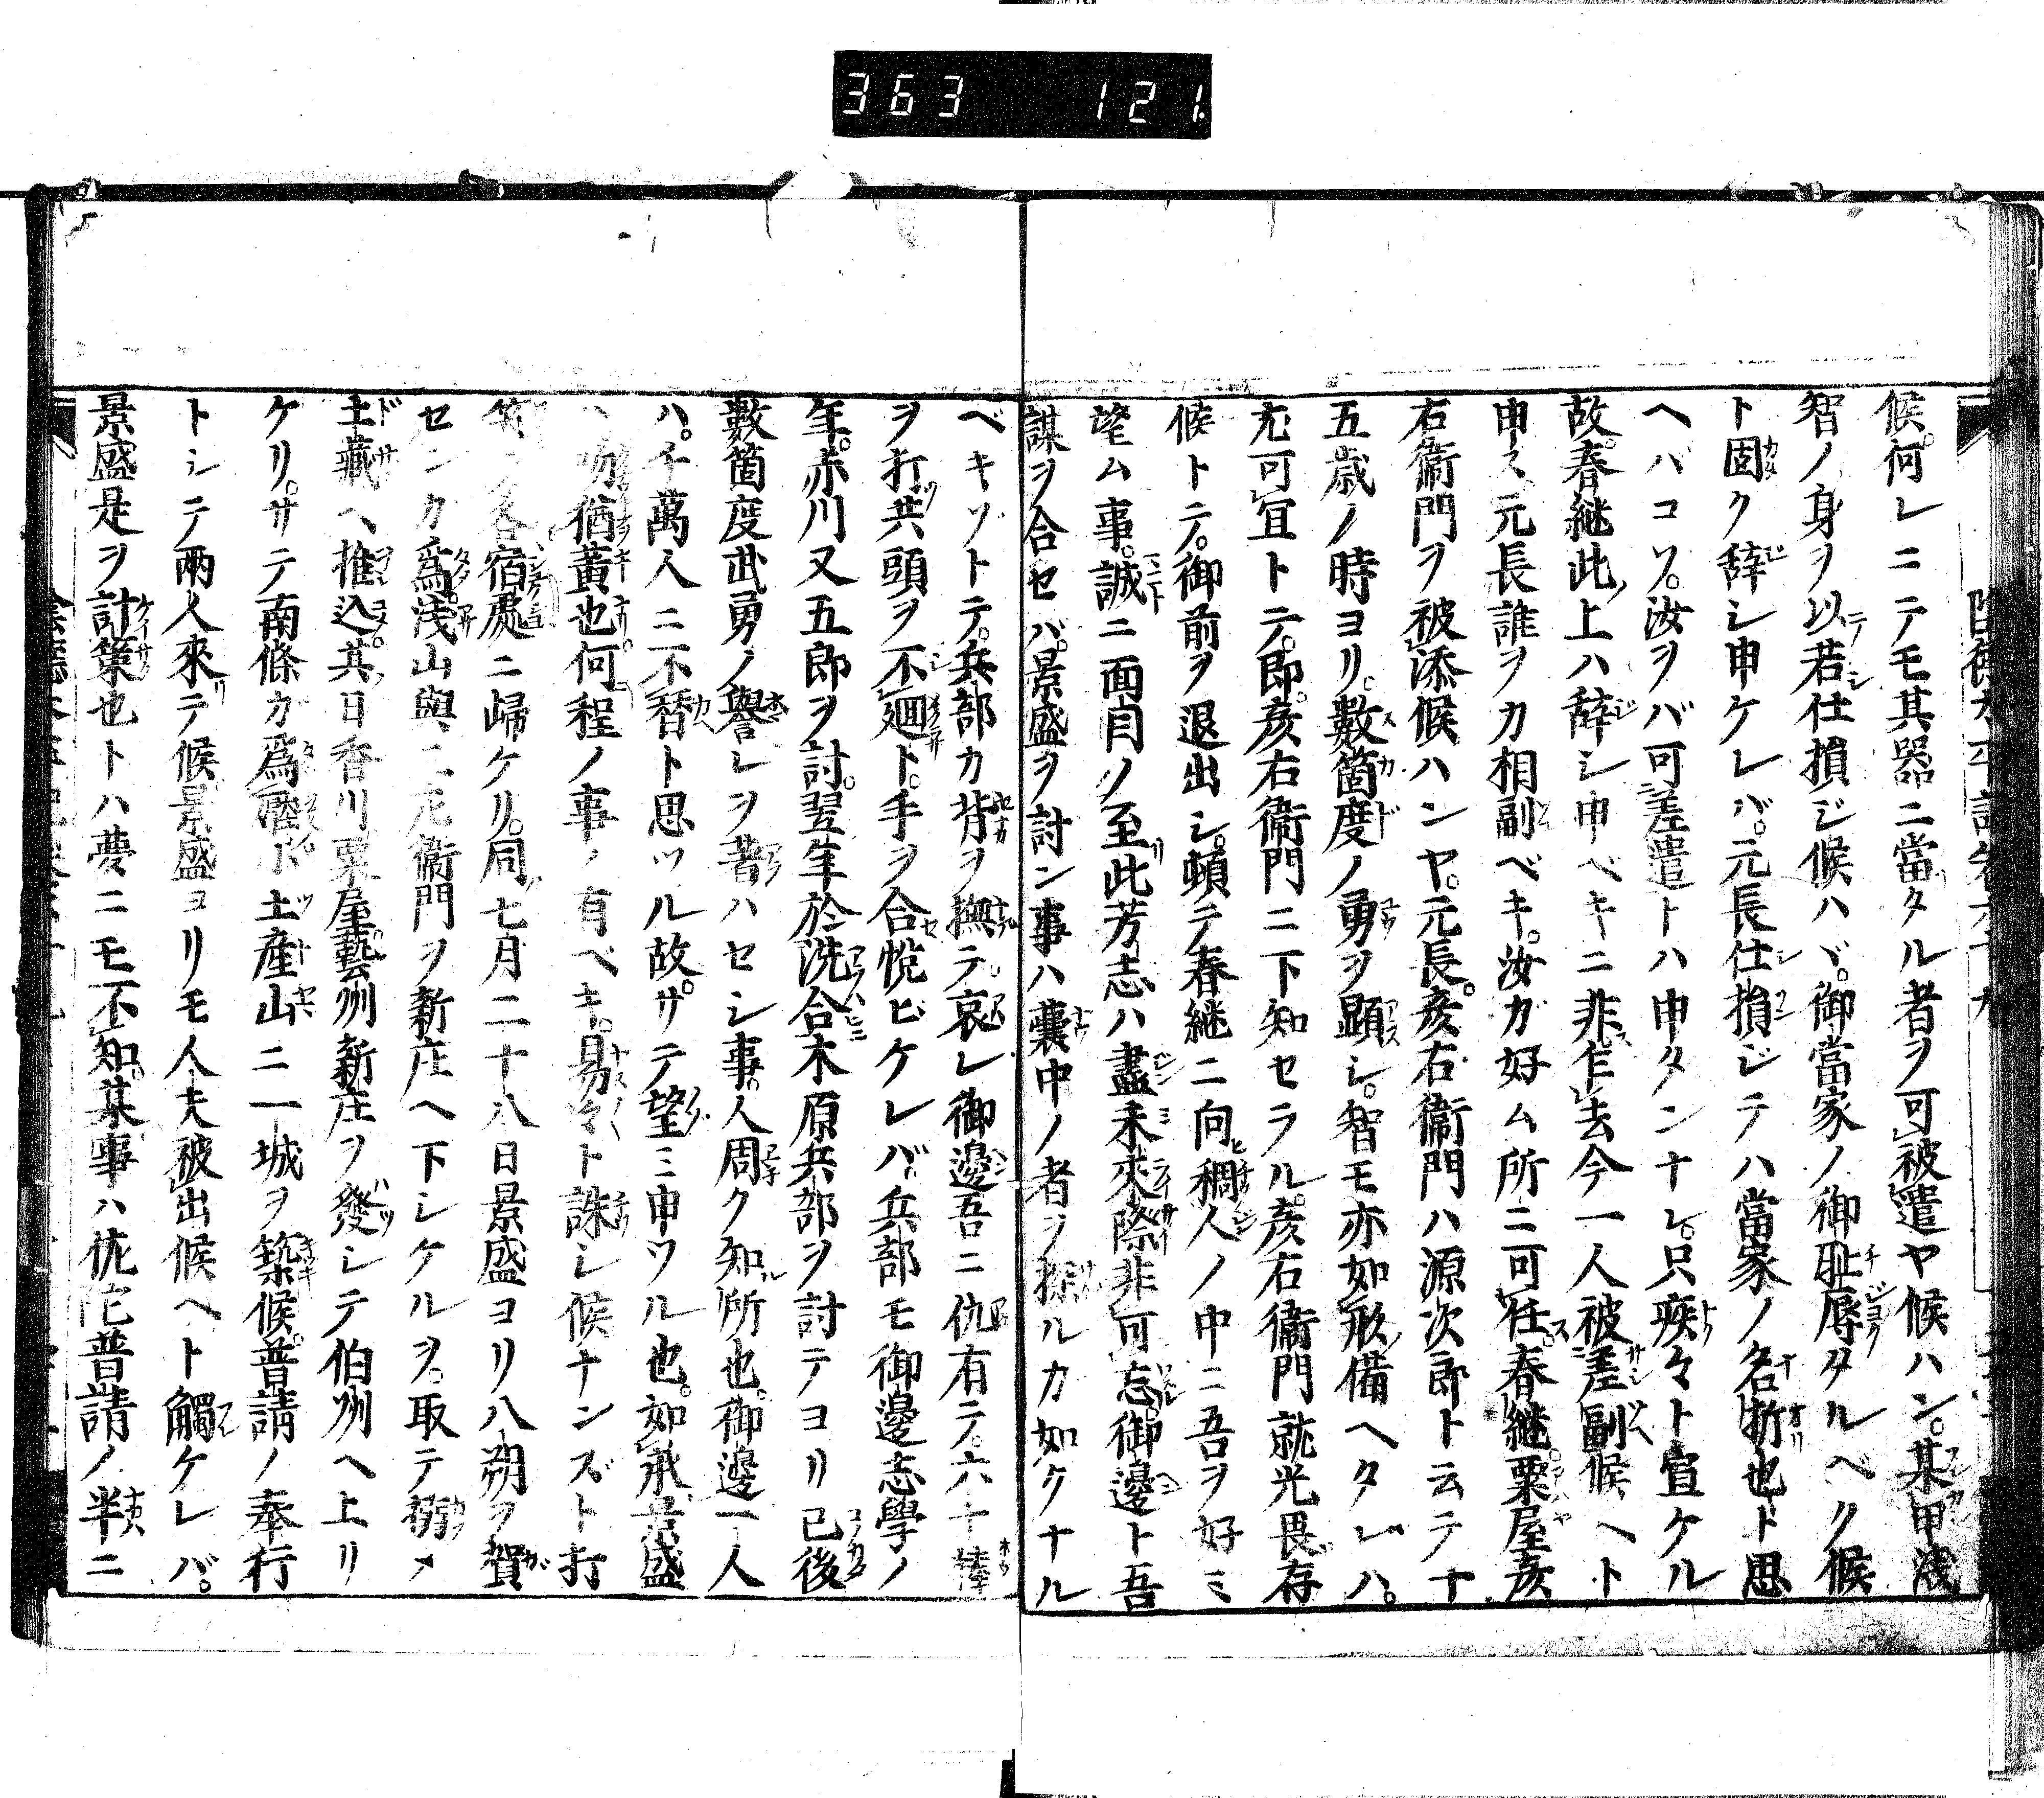 363 121
候。何レニテモ其器ニ當タル者ヲ可被遣ヤ候ハン。某甲淺
智ノ身ヲ以若仕損ジ候ハヾ。御當家ノ御耻辱タルベク候
ト固ク辞シ申ケレバ。元長仕損ジテハ當家ノ名折也ト思
ヘバコソ。汝ヲバ可差遣トハ申タンナレ。只疾々ト宣ケル
故。春継此上ハ辞シ申ベキニ非乍去今一人被差副候ヘト
申ス元長誰ヲカ相副ベキ。汝ガ好ム所ニ可任。春継。粟屋彦
右衞門ヲ被添候ハンヤ。元長。彦右衞門ハ源次郎ト云テ十
五歳ノ時ヨリ。數箇度ノ勇ヲ顕シ。智モ亦如形備ヘタレハ。
尤可宜トテ。即彦右衞門ニ下知セラル。彦右衞門就光畏存
候トテ。御前ヲ退出シ。頓テ春継ニ向稠人ノ中ニ吾ヲ好ミ
望ム事。誠ニ面目ノ至此芳志ハ盡未來際非可忘。御邊ト吾
謀ヲ合セバ。景盛ヲ討ン事ハ嚢中ノ者ヲ探ルカ如クナル
ベキゾトテ。兵部カ背ヲ撫テ。哀レ御邊吾ニ仇有テ。六十棒
ヲ打共頭ヲ不廻ト。手ヲ合悦ビケレバ。兵部モ御邊志學ノ
年。赤川又五郎ヲ討。翌年於洗合木原兵部ヲ討テヨリ已後
數箇度武勇ノ譽レヲ昔ハセシ事。人周ク知所也。御邊一人
ハ。千萬人ニ不替ト思ツル故。サテ望ミ申ツル也。如承景盛
ハ吻猶黄也何程ノ事ノ有ベキ。易々ト誅シ候ナンズト打
笑ヒ各宿處ニ歸ケリ。同七月二十八日景盛ヨリ八朔ヲ賀
センカ爲。浅山與三左衞門ヲ新庄ヘ下シケルヲ。取テ搦メ
土藏ヘ推込其日香川粟屋藝州新庄ヲ發シテ伯州ヘ上リ
ケリ。サテ南條カ爲壓ト土産山ニ一城ヲ築候。普請ノ奉行
トシテ兩人來テ候。景盛ヨリモ人夫被出候ヘト觸ケレバ。
景盛是ヲ計策也トハ夢ニモ不知某事ハ侘佗普請ノ半ニ